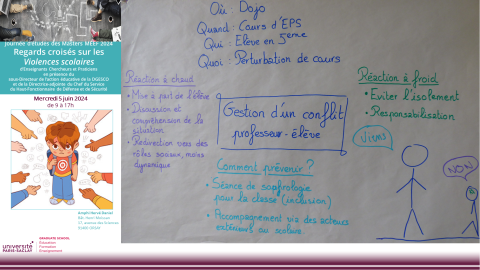 Journée d'études des Masters MEEF 2024
Regards croisés sur les
Violences scolaires
d'Enseignants Chercheurs et Praticiens
en présence du
sous-Directeur de l'action éducative de la DGESCO
et de la Directrice-adjointe du Chef du Service
du Haut-Fonctionnaire de Défense et de Sécurité
Mercredi 5 juin 2024
de 9 à 17h
université
PARIS-SACLAY
GRADUATE SCHOOL
Éducation
Formation
Enseignement
Où : Dojo
Quand : Cours d'EPS
Qui : Elève en 5ème
Quoi : Perturbation de cours
Réaction à chaud
• Mise à part de l'élève
• Discussion et
compréhension de la
situation
• Redirection vers des
rôles sociaux, moins
dynamique
Gestion d'un conflit
professeur-élève
Réaction à froid
• Eviter l'isolement
• Responsabilisation
Viens
NON
Comment prévenir ?
• Séance de sophrologie
pour la classe (inclusion)
• Accompagnement via des acteurs
extérieurs au scolaire